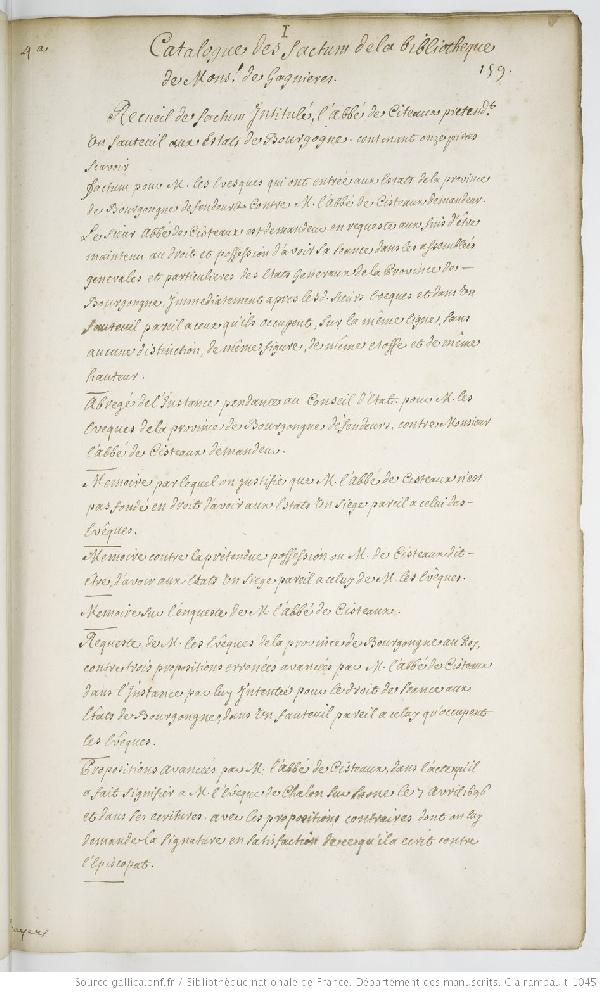 I
4a
Catalogue des factum de la bibliotheque
de Mons.r de Gagnieres.
159.
Recueil de factum Intitulé, l'abbé de Citeaux pretend.t
Un fauteuil aux Estats de Bourgogne. contenant onze pieces
scavoir
factum pour M. les Evesques qui ont entrée aux Estats de la province
de Bourgongne defendeurs contre M. l'abbé de Cisteaux demandeur.
Le sieur abbé de Cisteaux est demandeur en requeste aux fins d'être
maintenu au droit et possession d'avoir sa seance dans les assemblées
generales et particulieres des Etats Generaux de la Province de
Bourgongne Immediatement apres lesd. sieurs Eveques et dans Un
fauteuil pareil a ceux qu'ils occupent, sur la même ligne, sans
aucune distinction, de même figure, de même etoffe et de même
hauteur.
Abregé de l'Instance pendante au Conseil d'Etat. pour M. les
Eveques de la province de Bourgongne defendeurs, contre Monsieur
l'abbé de Cisteaux demandeur.
Memoire par lequel on justifie que M. l'abbé de Cisteaux n'est
pas fondé en droit d'avoir aux Estats Un siege pareil a celui des
Evêques.
Memoire contre la prétendue possession ou M. de Cisteaux dit
etre, d'avoir aux Etats Un siege pareil a celuy de M. les Evêques.
Memoire sur l'enqueste de M. l'abbé de Cisteaux.
Requeste de M. les Evêques de la province de Bourgongne au Roy,
contre trois propositions erronées avancées par M. l'abbé de Cisteaux
dans l'Instance par luy Intentée pour le droit de seance aux
Etats de Bourgongne, dans Un fauteuil pareil a celuy qu'occupent
les Evêques.
Propositions avancées par M. l'abbé de Cisteaux, dans l'acte qu'il
a fait signifier a M. l'Evêque de Chalon sur Saone le 7 Avril 1696
et dans ses ecritures. avec les propositions contraires dont on luy
demande la signature en satisfaction de ce qu'il a ecrit contre
l'Episcopat.
Source gallica.bnf.fr / Bibliothèque nationale de France. Département des manuscrits. Clairambault 1045